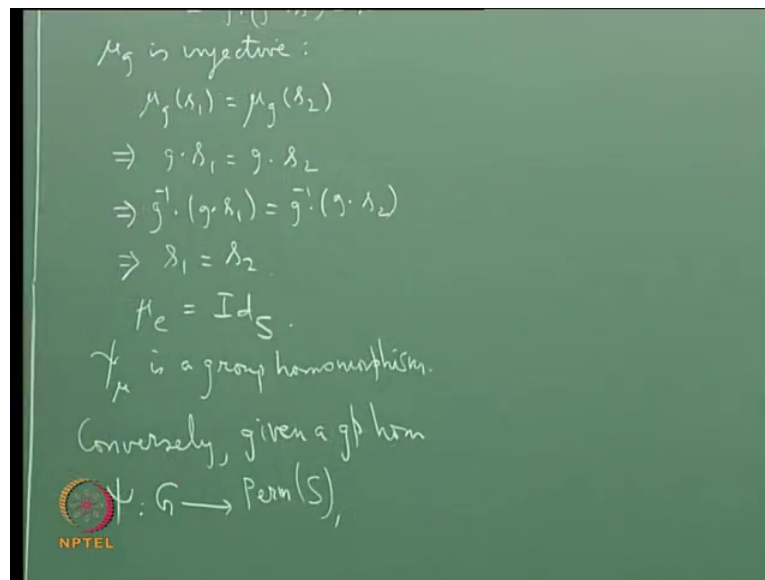 μ_g is injective :
μ_g(s_1) = μ_g(s_2)
⇒ g·s_1 = g·s_2
⇒ g^{-1}·(g·s_1) = g^{-1}·(g·s_2)
⇒ s_1 = s_2.
μ_e = Id_S.
ψ_μ is a group homomorphism.
Conversely, given a gp hom
ψ: G ⟶ Perm(S),
NPTEL